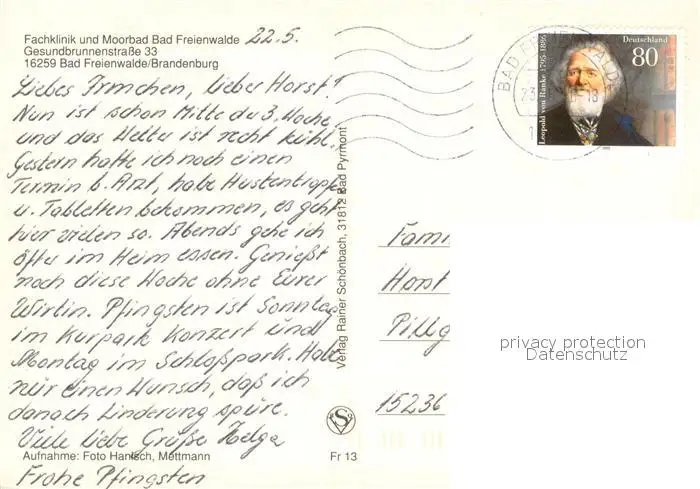 Fachklinik und Moorbad Bad Freienwalde 22.5.
Gesundbrunnenstraße 33
16259 Bad Freienwalde/Brandenburg
Liebes Irmchen, lieber Horst!
Nun ist schon Mitte der 3. Woche
und das Wetter ist recht kühl.
Gestern hatte ich noch einen
Termin b. Arzt, habe Hustentropf
u. Tabletten bekommen, es geht
hier vielen so. Abends gehe ich
öfter im Heim essen. Genießt
noch diese Woche ohne Eurer
Wirtin. Pfingsten ist Sonntag
im Kurpark Konzert und
Montag im Schloßpark. Habe
nur einen Wunsch, daß ich
danach Linderung spüre.
Viele liebe Grüße Helga
Aufnahme: Foto Hanisch, Mettmann
Frohe Pfingsten
Verlag Rainer Schönbach, 31812 Bad Pyrmont
S
Fr 13
BAD FREIENWALDE
Leopold von Ranke 1795-1886
Deutschland
80
Fami
Horst
Pillg
15236
privacy protection
Datenschutz